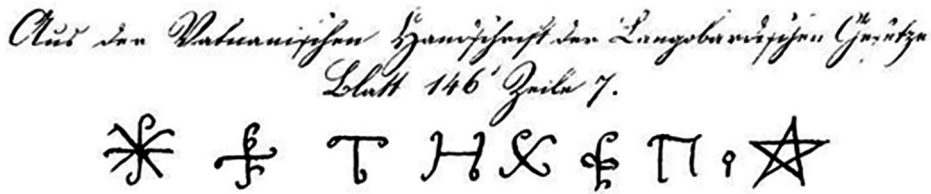 Aus der Vatikanischen Handschrift der Langobardischen Gesetze
Blatt 146' Zeile 7.